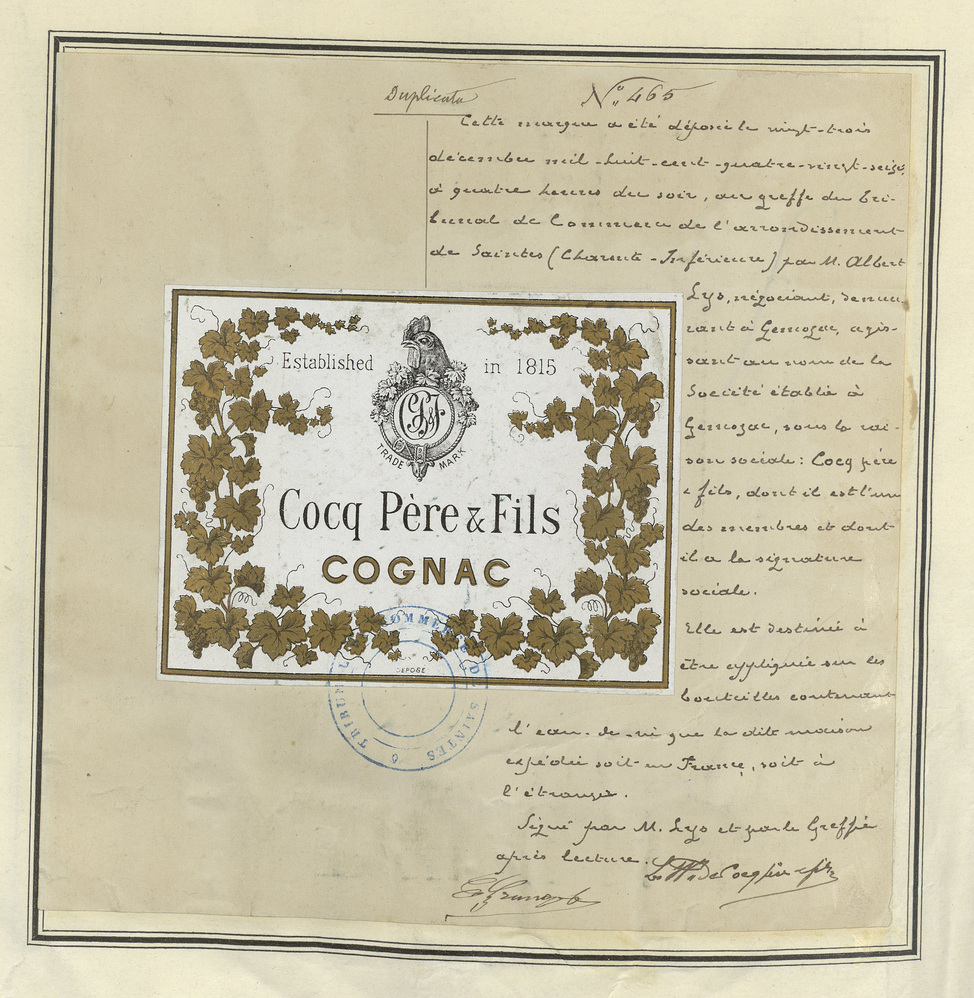 Duplicata
N° 465
Cette marque a été déposée le vingt-trois
décembre mil-huit-cent-quatre-vingt-seize,
à quatre heures du soir, au greffe du Tri-
bunal de Commerce de l'arrondissement
de Saintes (Charente-Inférieure) par M. Albert
Lys, négociant, demeu
rant à Gemozac, agis-
sant au nom de la
Société établie à
Gemozac, sous la rai-
son sociale: Cocq père
& fils, dont il est l'un
des membres et dont
il a la signature
sociale.
Elle est destinée à
être appliquée sur les
bouteilles contenant
l'eau-de-vie que la dite maison
expédie soit en France, soit à
l'étranger.
Signé par M. Lys et par le Greffier
après lecture.
de Cocq père & fils
Established in 1815
TRADE MARK
Cocq Père & Fils
COGNAC
DÉPOSÉ
TRIBUNAL COMMERCE DE SAINTES